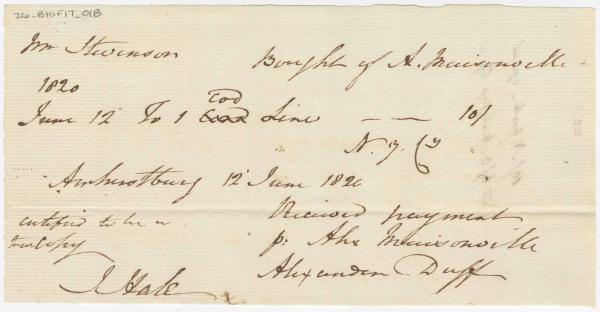 26_B10F17_018
Mr Stevenson Bought of A. Maisonville
1820
June 12 To 1 Cod Line — — 10/
N. Y. Cy
Amherstburg 12 June 1820
Received payment
certified to be a
true Copy
p: Alx Maisonville
Alexander Duff
J Hale